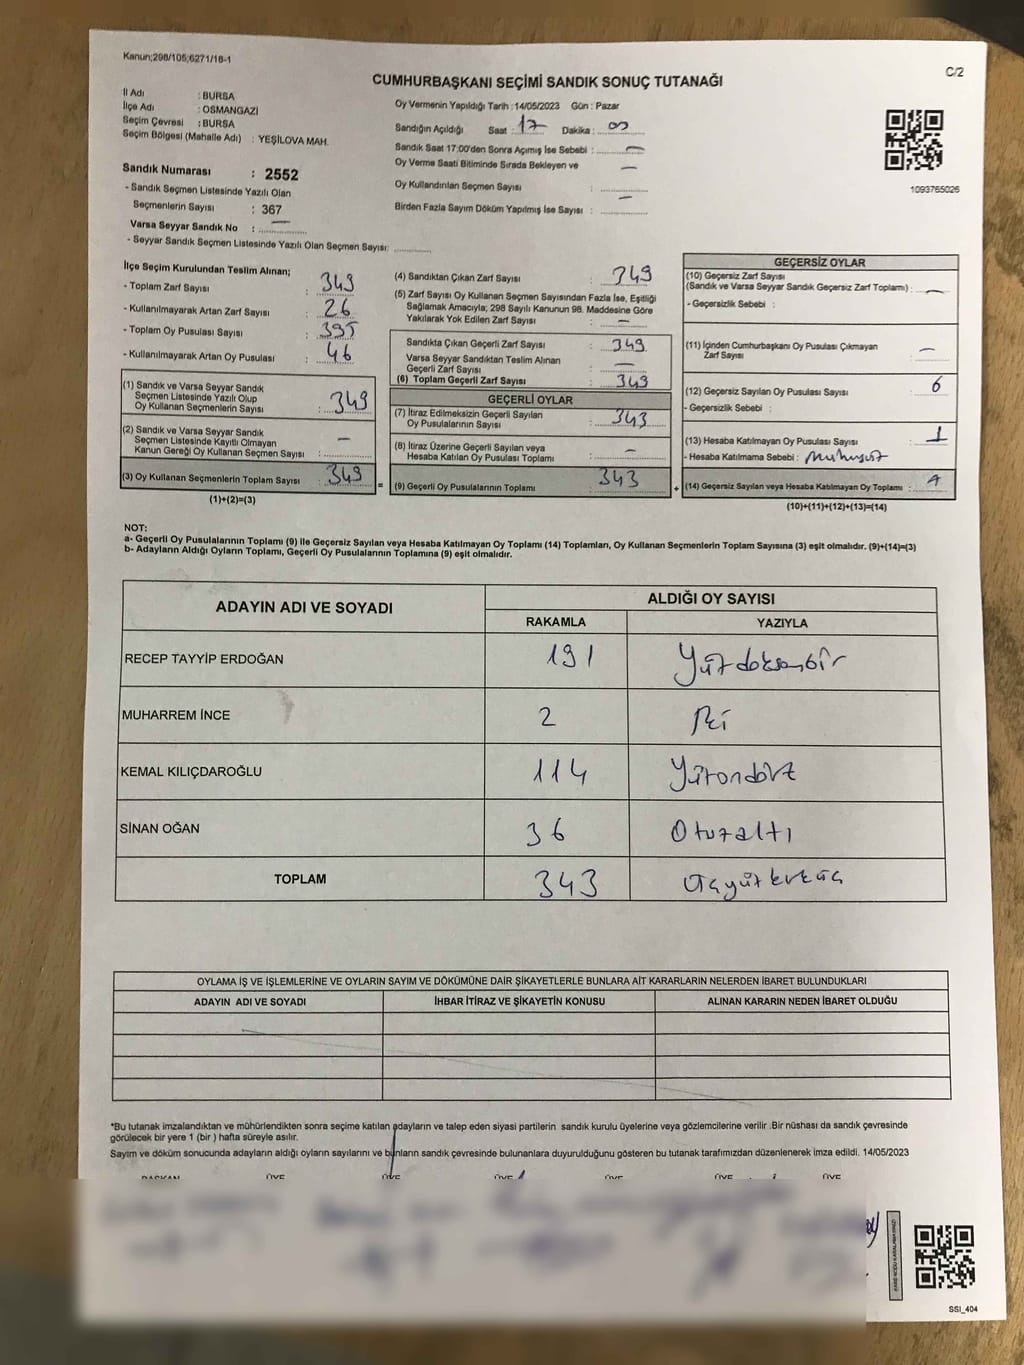 Kanun;298/105;6271/16-1
C/2
CUMHURBAŞKANI SEÇİMİ SANDIK SONUÇ TUTANAĞI
İl Adı : BURSA
İlçe Adı : OSMANGAZİ
Seçim Çevresi : BURSA
Seçim Bölgesi (Mahalle Adı) : YEŞİLOVA MAH.
Oy Vermenin Yapıldığı Tarih :14/05/2023 Gün : Pazar
Sandığın Açıldığı Saat : 17 Dakika : 00
Sandık Saat 17:00'den Sonra Açımış İse Sebebi : —
Oy Verme Saati Bitiminde Sırada Bekleyen ve
Oy Kullandırılan Seçmen Sayısı : —
Birden Fazla Sayım Döküm Yapılmış İse Sayısı : —
1093765026
Sandık Numarası : 2552
- Sandık Seçmen Listesinde Yazılı Olan
Seçmenlerin Sayısı : 367
Varsa Seyyar Sandık No : —
- Seyyar Sandık Seçmen Listesinde Yazılı Olan Seçmen Sayısı:
İlçe Seçim Kurulundan Teslim Alınan;
- Toplam Zarf Sayısı : 349
- Kullanılmayarak Artan Zarf Sayısı : 26
- Toplam Oy Pusulası Sayısı : 395
- Kullanılmayarak Artan Oy Pusulası : 46
(1) Sandık ve Varsa Seyyar Sandık
Seçmen Listesinde Yazılı Olup
Oy Kullanan Seçmenlerin Sayısı : 349
(2) Sandık ve Varsa Seyyar Sandık
Seçmen Listesinde Kayıtlı Olmayan
Kanun Gereği Oy Kullanan Seçmen Sayısı : —
(3) Oy Kullanan Seçmenlerin Toplam Sayısı : 349
(1)+(2)=(3)
(4) Sandıktan Çıkan Zarf Sayısı : 349
(5) Zarf Sayısı Oy Kullanan Seçmen Sayısından Fazla İse, Eşitliği
Sağlamak Amacıyla; 298 Sayılı Kanunun 98. Maddesine Göre
Yakılarak Yok Edilen Zarf Sayısı : —
Sandıkta Çıkan Geçerli Zarf Sayısı : 349
Varsa Seyyar Sandıktan Teslim Alınan
Geçerli Zarf Sayısı : —
(6) Toplam Geçerli Zarf Sayısı : 349
GEÇERLİ OYLAR
(7) İtiraz Edilmeksizin Geçerli Sayılan
Oy Pusulalarının Sayısı : 343
(8) İtiraz Üzerine Geçerli Sayılan veya
Hesaba Katılan Oy Pusulası Toplamı : —
= (9) Geçerli Oy Pusulalarının Toplamı : 343
GEÇERSİZ OYLAR
(10) Geçersiz Zarf Sayısı
(Sandık ve Varsa Seyyar Sandık Geçersiz Zarf Toplamı) : —
- Geçersizlik Sebebi :
(11) İçinden Cumhurbaşkanı Oy Pusulası Çıkmayan
Zarf Sayısı : —
(12) Geçersiz Sayılan Oy Pusulası Sayısı : 6
- Geçersizlik Sebebi :
(13) Hesaba Katılmayan Oy Pusulası Sayısı : 1
- Hesaba Katılmama Sebebi :
+ (14) Geçersiz Sayılan veya Hesaba Katılmayan Oy Toplamı :
(10)+(11)+(12)+(13)=(14)
NOT:
a- Geçerli Oy Pusulalarının Toplamı (9) ile Geçersiz Sayılan veya Hesaba Katılmayan Oy Toplamı (14) Toplamları, Oy Kullanan Seçmenlerin Toplam Sayısına (3) eşit olmalıdır. (9)+(14)=(3)
b- Adayların Aldığı Oyların Toplamı, Geçerli Oy Pusulalarının Toplamına (9) eşit olmalıdır.
ADAYIN ADI VE SOYADI ALDIĞI OY SAYISI
RAKAMLA YAZIYLA
RECEP TAYYİP ERDOĞAN 191 Yüzdoksanbir
MUHARREM İNCE 2 İki
KEMAL KILIÇDAROĞLU 114 Yüzondört
SİNAN OĞAN 36 Otuzaltı
TOPLAM 343 Üçyüzkırküç
OYLAMA İŞ VE İŞLEMLERİNE VE OYLARIN SAYIM VE DÖKÜMÜNE DAİR ŞİKAYETLERLE BUNLARA AİT KARARLARIN NELERDEN İBARET BULUNDUKLARI
ADAYIN ADI VE SOYADI İHBAR İTİRAZ VE ŞİKAYETİN KONUSU ALINAN KARARIN NEDEN İBARET OLDUĞU
*Bu tutanak imzalandıktan ve mühürlendikten sonra seçime katılan adayların ve talep eden siyasi partilerin sandık kurulu üyelerine veya gözlemcilerine verilir .Bir nüshası da sandık çevresinde
görülecek bir yere 1 (bir ) hafta süreyle asılır.
Sayım ve döküm sonucunda adayların aldığı oyların sayılarını ve bunların sandık çevresinde bulunanlara duyurulduğunu gösteren bu tutanak tarafımızdan düzenlenerek imza edildi. 14/05/2023
BAŞKAN ÜYE ÜYE ÜYE ÜYE ÜYE ÜYE
SSI_404